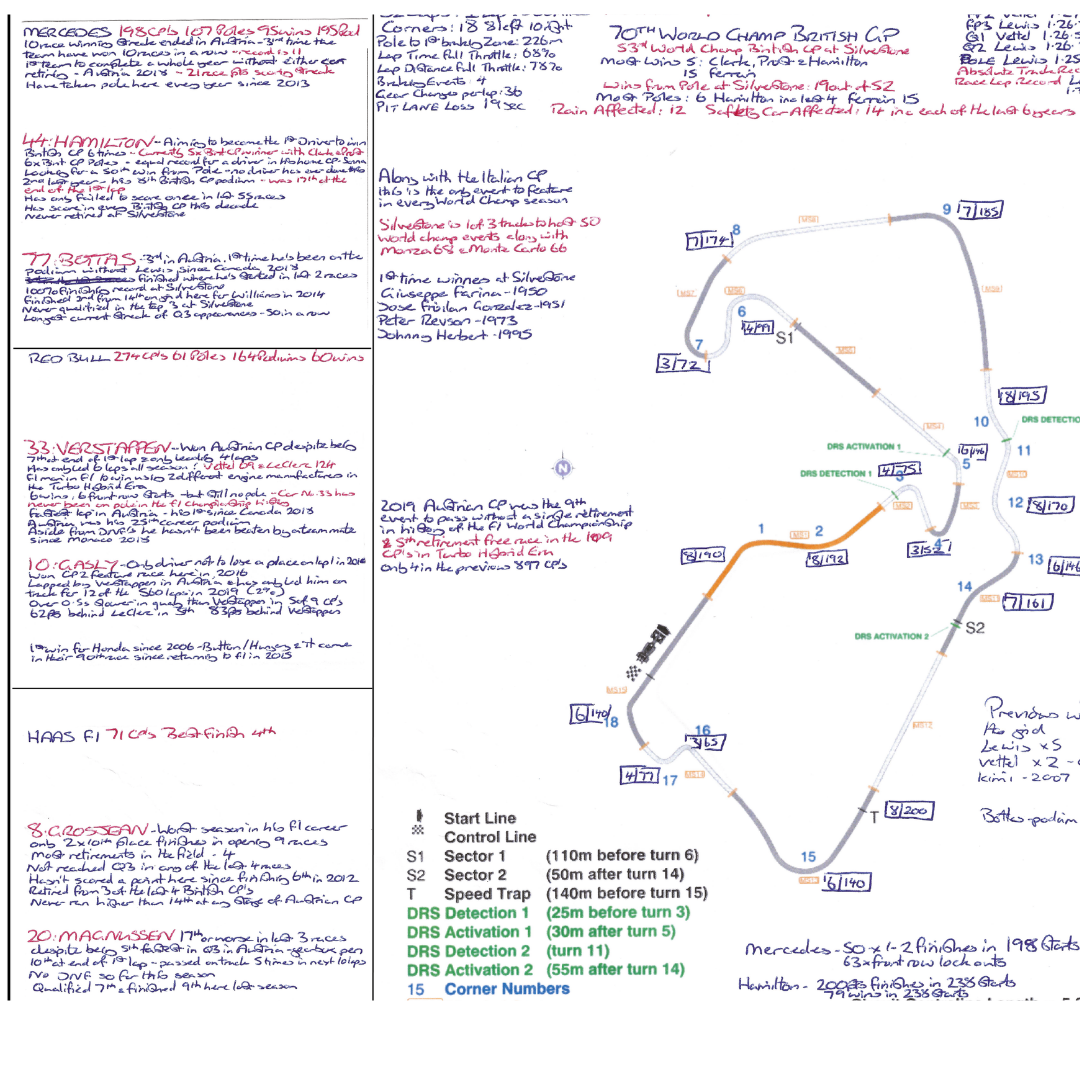 MERCEDES 198GPs 107 Poles 95wins 195Pod
10 race winning streak ended in Austria - 3rd time the
team have won 10 races in a row - record is 11
1st team to complete a whole year without either car
retiring - Austria 2018 - 21 race pts scoring streak
Have taken pole here every year since 2013
44: HAMILTON - Aiming to become the 1st Driver to win
British GP 6 times - Currently 5x Brit GP winner with Clark & Prost
6x Brit GP Poles - equal record for a driver in his home GP - Senna
Looking for a 50th win from Pole - no driver has ever done this
2nd last year - his 8th British GP podium - was 17th at the
end of the 1st lap
Has only failed to score once in last 55 races
Has score in every British GP this decade
Never retired at Silverstone
77: BOTTAS - 3rd in Austria, 1st time he's been on the
podium without Lewis since Canada 2018
finished where he's started in last 2 races
100% finishing record at Silverstone
Finished 2nd from 14th on grid here for Williams in 2014
Never qualified in the top 3 at Silverstone
Longest current streak of Q3 appearances - 50 in a row
RED BULL 274GPs 61 Poles 164 Podiums 60 wins
33: VERSTAPPEN - Won Austrian GP despite being
7th at end of 1st lap & only leading 4 laps
Has only led 6 laps all season! Vettel 69 & Leclerc 124
F1 man in F1 to win using 2 different engine manufacturers in
the Turbo Hybrid Era
6 wins: 6 front row starts - but still no pole - Car No. 33 has
never been on pole in the F1 Championship history
fastest lap in Austria - his 1st since Canada 2018
Austria was his 25th career podium
Aside from DNFs he hasn't been beaten by a team mate
since Monaco 2018
10: GASLY - Only driver not to lose a place on lap 1 in 2018
Won GP2 feature race here in 2016
Lapped by Verstappen in Austria & has only led him on
track for 12 of the 560 laps in 2019 (2%)
Over 0.5s slower in qualy than Verstappen in 5 of 9 GPs
62pts behind Leclerc in 5th 83pts behind Verstappen
1st win for Honda since 2006 - Button/Hungary & it came
in their 90th race since returning to f1 in 2015
HAAS F1 71 GPs Best finish 4th
8: GROSJEAN - Worst season in his f1 career
only 2x10th place finishes in opening 9 races
Most retirements in the field - 4
Not reached Q3 in any of the last 4 races
Hasn't scored a point here since finishing 6th in 2012
Retired from 3 of the last 4 British GPs
Never ran higher than 14th at any stage of Austrian GP
20: MAGNUSSEN 17th or worse in last 3 races
despite being 5th fastest in Q3 in Austria - gearbox pen
10th at end of 1st lap - passed on track 5 times in next 10 laps
No DNF so far this season
Qualified 7th & finished 9th here last season
Corners: 18 8 left 10 right
Pole to 1st braking Zone: 226m
Lap Time Full Throttle: 68%
Lap Distance Full Throttle: 78%
Braking Events: 4
Gear Changes per lap: 36
PIT LANE Loss 19 sec
70TH WORLD CHAMP BRITISH GP
53rd World Champ British GP at Silverstone
Most Wins 5: Clark, Prost & Hamilton
15 Ferrari
Wins from Pole at Silverstone: 19 out of 52
Most Poles: 6 Hamilton inc last 4 Ferrari 15
Rain Affected: 12 Safety Car Affected: 14 inc each of the last 6 years
FP3 Lewis 1.26.
Q1 Vettel 1.26.
Q2 Lewis 1.26.
POLE Lewis 1.25
Absolute Track Rec
Race Lap Record L
Along with the Italian GP
this is the only event to feature
in every World Champ season
Silverstone is 1 of 3 tracks to host 50
World champ events along with
Monza 68 & Monte Carlo 66
1st time winners at Silverstone
Giuseppe Farina - 1950
Jose Froilan Gonzalez - 1951
Peter Revson - 1973
Johnny Herbert - 1995
2019 Austrian GP was the 9th
event to pass without a single retirement
in history of the F1 World Championship
& 5th retirement free race in the 109
GPs in Turbo Hybrid Era
only 4 in the previous 897 GPs
9 7/185
MS8
8
7/174
MS7
MS6
6
4/99
S1
MS9
7
3/72
MS5
8/195
10
DRS DETECTIO
11
MS4
DRS ACTIVATION 1
6/146
5
DRS DETECTION 1
4/75
3
MS10
N
12
8/170
MS2
MS3
1
MS1
2
4
8/190
8/192
13
14
MS11
7/161
S2
DRS ACTIVATION 2
MS15
6/140
18
16
3/65
MS12
4/77
17
MS14
T
8/200
15
6/140
MS13
Previous wi
Lewis x5
Vettel x 2
Kimi - 2007
Bottas - podium
Start Line
Control Line
S1 Sector 1 (110m before turn 6)
S2 Sector 2 (50m after turn 14)
T Speed Trap (140m before turn 15)
DRS Detection 1 (25m before turn 3)
DRS Activation 1 (30m after turn 5)
DRS Detection 2 (turn 11)
DRS Activation 2 (55m after turn 14)
15 Corner Numbers
Mercedes - 50 x 1-2 finishes in 198 starts
63x front row lock outs
Hamilton - 200pts finishes in 238 starts
79 wins in 238 starts